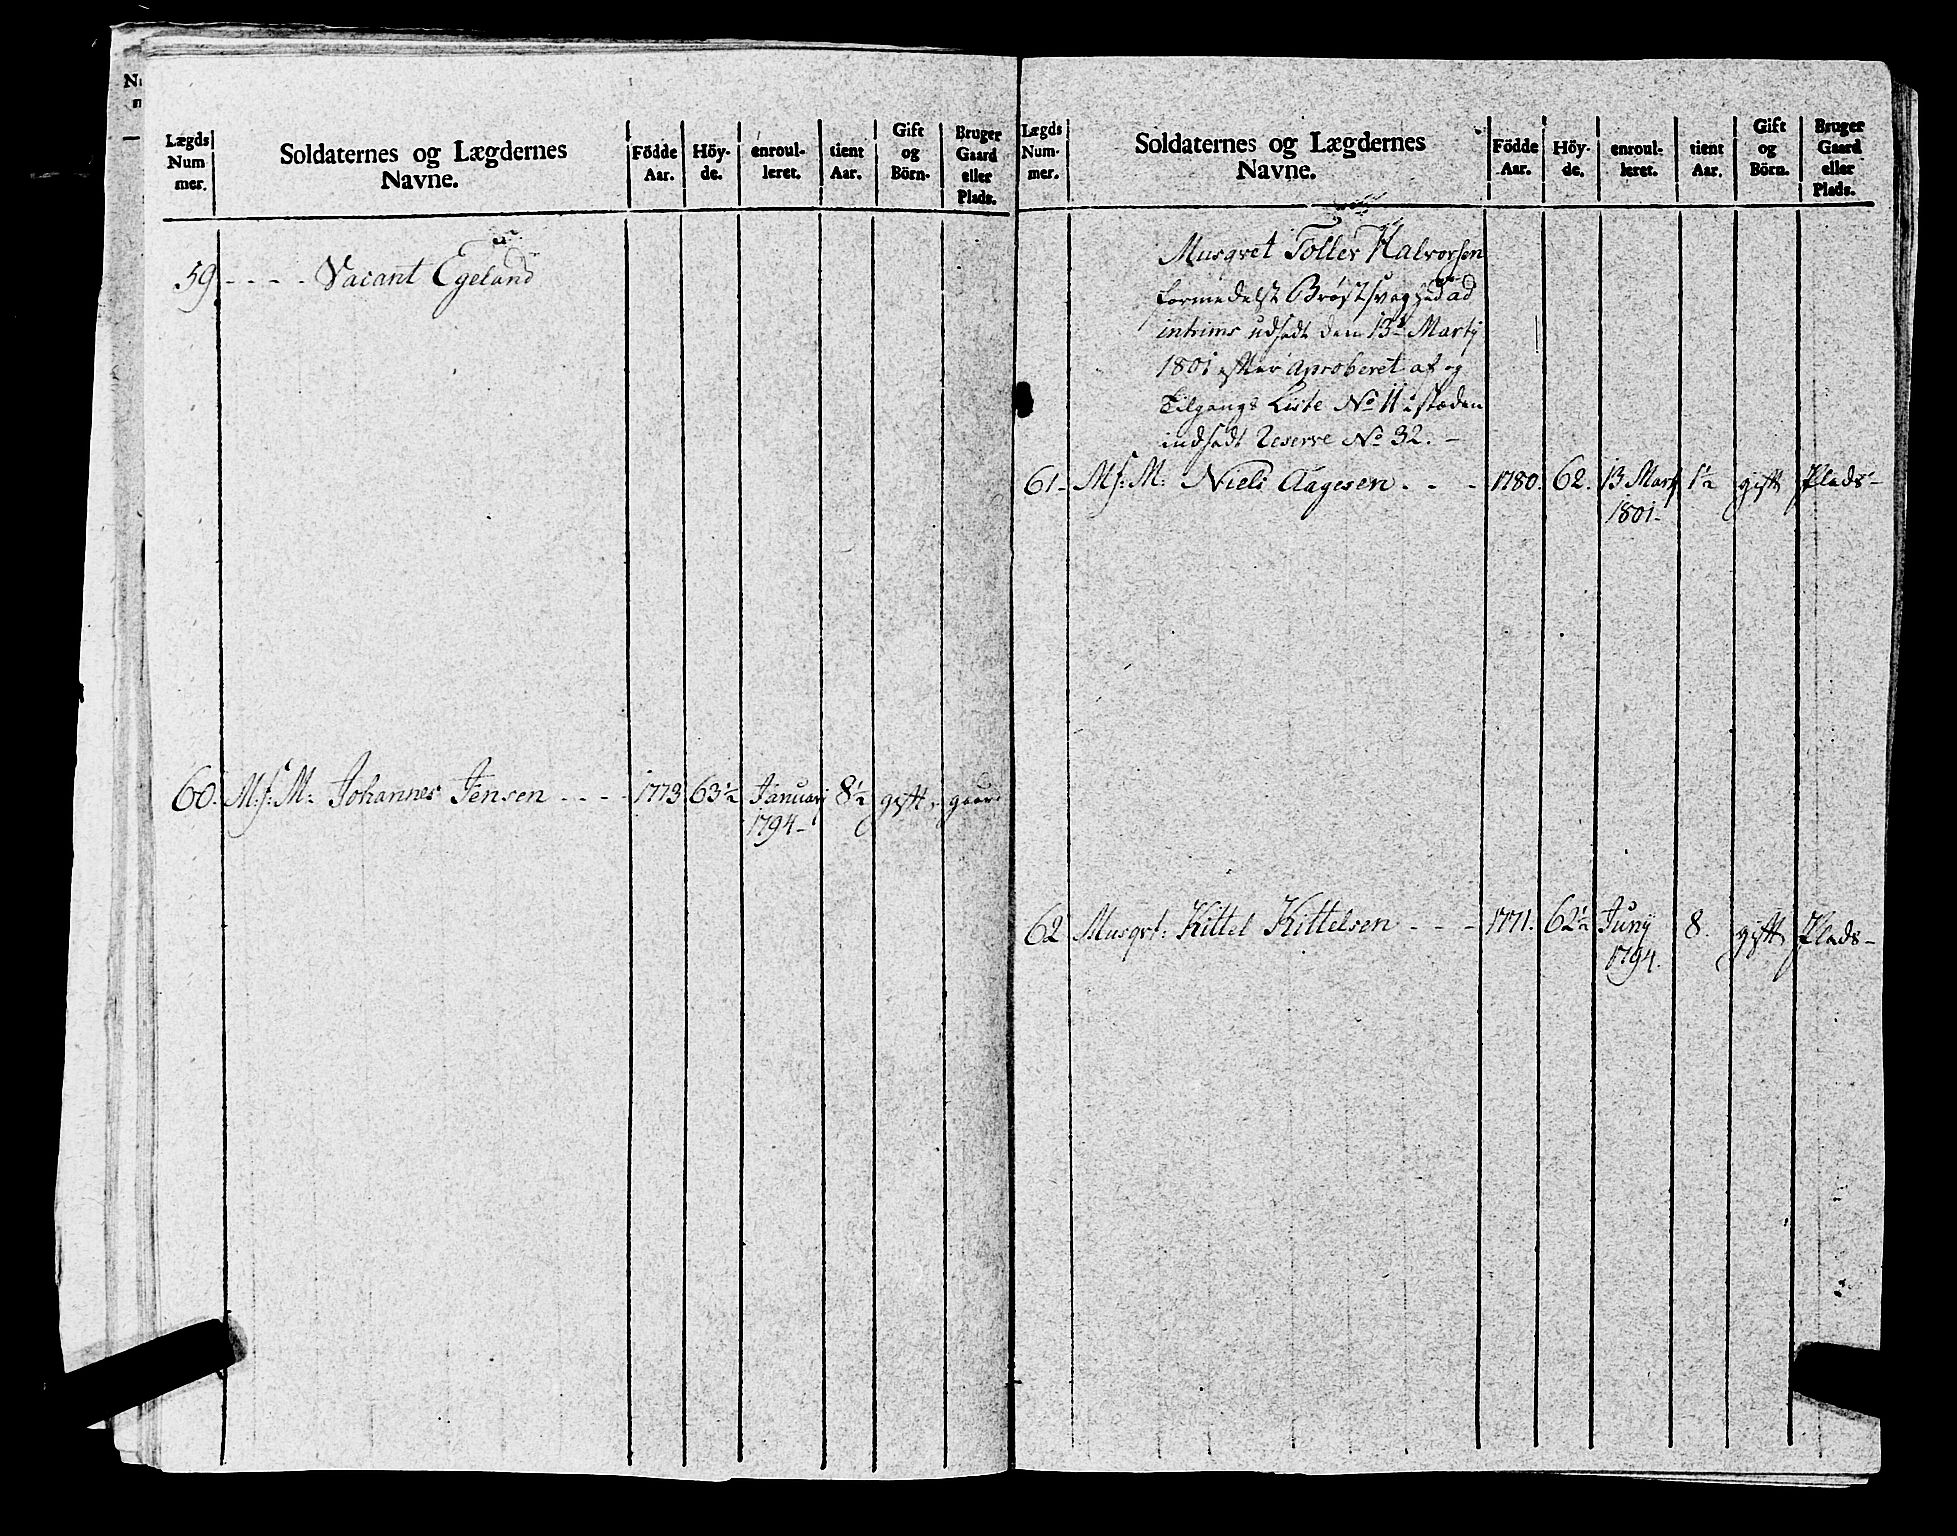 Lægds
Num
mer.
Soldaternes og Lægdernes
Navne.
Födde
Aar.
Höy-
de.
enroul-
leret.
tient
Aar.
Gift
og
Börn.
Bruger
Gaard
eller
Plads.
59 - - - - Vacant Egeland
60. M:s: M: Johannes Jensen - - - - 1773 63½ Januarj 8½ gift, gaard
1794-
Lægds
Num-
mer.
Soldaternes og Lægdernes
Navne.
Födde
Aar.
Höy-
de.
enroul-
leret.
tient
Aar.
Gift
og
Börn.
Bruger
Gaard
eller
Plads.
Musqvet Toller Halvorsen
formedelst Brøstsvaghed ad
intrims udsadt den 13de Martij
1801 efter aproberet af og
Tilgangs Liste No 11 i stæden
indsadt Reserve No 32. -
61- M:s: M: Niels Aagesen - - - 1780. 62. 13 Mart 1½ gift Plads-
1801-
62 Musqvt: Kittel Kittelsen - - - 1771. 62½ Junij 8. gift Plads-
1794.